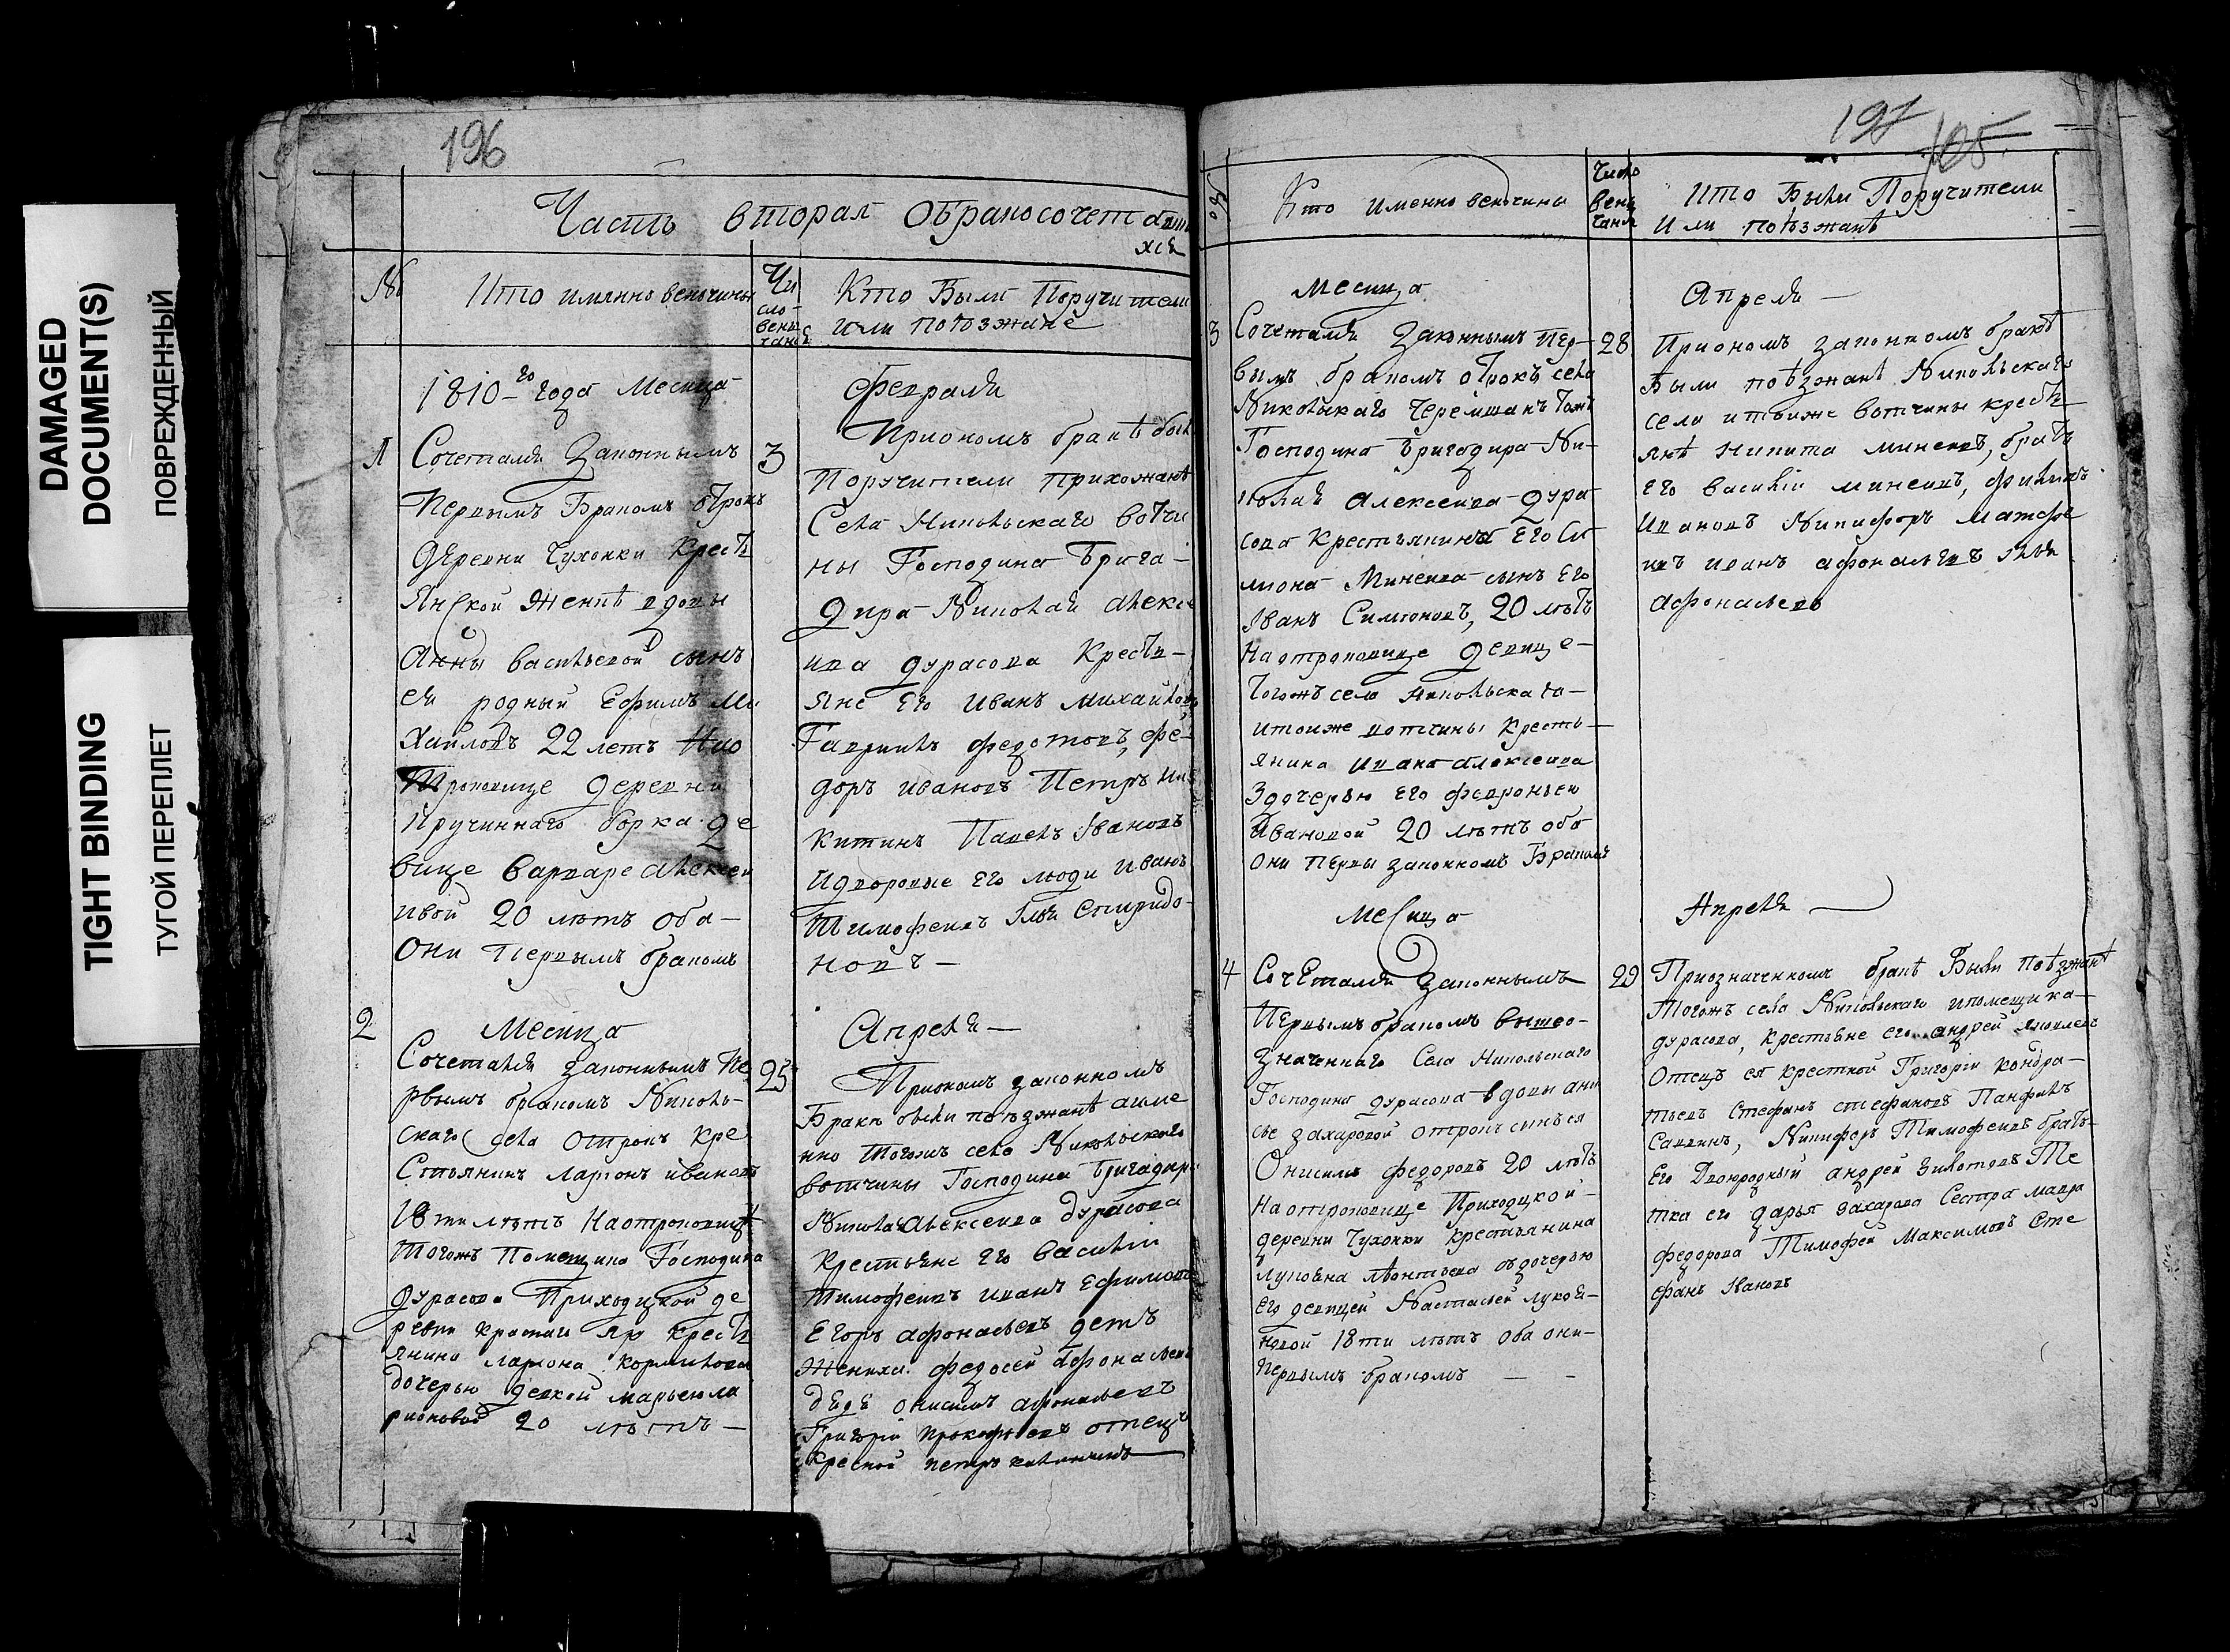 DAMAGED
DOCUMENT(S)
ПОВРЕЖДЕННЫЙ
TIGHT BINDING
ТУГОЙ ПЕРЕПЛЕТ
196
Часть вторая О бракосочетавши
хся
№ Кто имянно венчины
Чи
сло
венч
Кто Были Поручители
или поѣзжане
1810-го года Месяца
Февраля
1
Сочетался Законнымъ
Первымъ Бракомъ отрокъ
деревни Чухонки Кресть
Янской Женкѣ вдовы
Анны васильевой сынъ
ея родный Ефимъ Ми
хаиловъ 22 летъ
Троковице деревни
Кручиннаго борка де
вице варваре Алексеи
ивой 20 лѣтъ оба
Они первымъ бракомъ
3
Приономъ бракѣ были
Поручители прихожанѣ
Села Никольскаго вотчи
ны Господина Брига-
дира Николая Алексе
ива дурасова Кресть-
яне Его Иванъ михаиловъ
Гаврилъ федотовъ, Фе-
доръ ивановъ Петръ ни
китинъ Павелъ Івановъ
идворовые Его люди Иванъ
Тимофеивъ Илья Спиридо-
новъ —
2
Месяца
Апреля —
Сочетался Законнымъ Пе
рвымъ бракомъ Николь-
скаго села отрокъ Кре
стьянинъ ларионъ ивановъ
18ти лѣтъ Наотроковицѣ
Тогожъ Помещика Господина
Дурасова Приходцкой де
ревни яру кресть
янина лариона
дочерью девкой марьею ла
рионовой 20 лѣтъ —
25
Приономъ законномъ
Бракѣ были поѣзжанѣ аиме
нно тогожъ села Никольскаго
вотчины Господина Бригадира
Николая Алексеива Дурасова
крестьяне Его Василий
Тимофеивъ иванъ Ефимовъ
Егоръ афонасьевъ
Жениха федосей Афонасьевъ
онисимъ афонасьевъ
Григорий прокофьевъ отецъ
кресной петръ
197
105
Кто именно венчины
Число
венч
чанія
Кто Были Поручители
Или поѣзжанѣ
Месяца
Апреля —
3
Сочетался Законнымъ Пер-
вымъ бракомъ отрокъ села
Никольскаго Черемшанъ тожъ
Господина Бригадира Ни-
колая Алексеива Дура
сова Крестьянина Его Си
миона Минеива сынъ Его
Іванъ Симионовъ, 20 лѣтъ
На отроковице девице-
Тогожъ села никольскаго-
итоиже вотчины кресть-
янина ивана алексеива
Здочерью его февроньею
Ивановой 20 лѣтъ оба
Они первы законномъ Бракомъ
28
Приономъ законномъ бракѣ
Были поѣзжанѣ Никольскаго
села итоиже вотчины кресть
янѣ никита минеивъ, братъ
его василий минеивъ, филипъ
Ивановъ Никифоръ матфе
ивъ иванъ афонасьевъ илья
афонасьевъ
Месяца
Апреля —
4
Сочетался Законнымъ
Первымъ бракомъ вышео-
значеннаго Села Никольскаго
Господина дурасова вдовы ани
сье захаровой отрокъ сынъ ея
Онисимъ федоровъ 20 лѣтъ
На отроковице Приходцкой-
деревни Чухонки крестьянина
дочерью
Его девицей Настасьей лукоя-
новой 18ти лѣтъ оба они-
Первымъ бракомъ — —
29
Приозначенномъ бракѣ Были Поѣзжанѣ
Тогожъ села Никольскаго ипомещика
дурасова, крестьяне его андрей яковлевъ
Отецъ ея крестной Григорій кондра-
тьевъ Стефанъ стефановъ Панфилъ
Саввинъ, Никифоръ Тимофеивъ братъ-
Его Двоюродный андрей Те
тка его дарья захарова Сестра мавра
федорова Тимофей Максимовъ Сте
фанъ Ивановъ